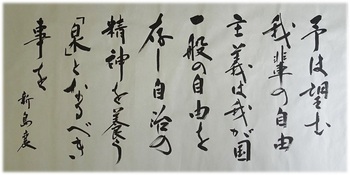 予は望む
我輩の自由
主義は我が国
一般の自由を
存し自治の
精神を養う
「泉」となるべき
事を
新島襄